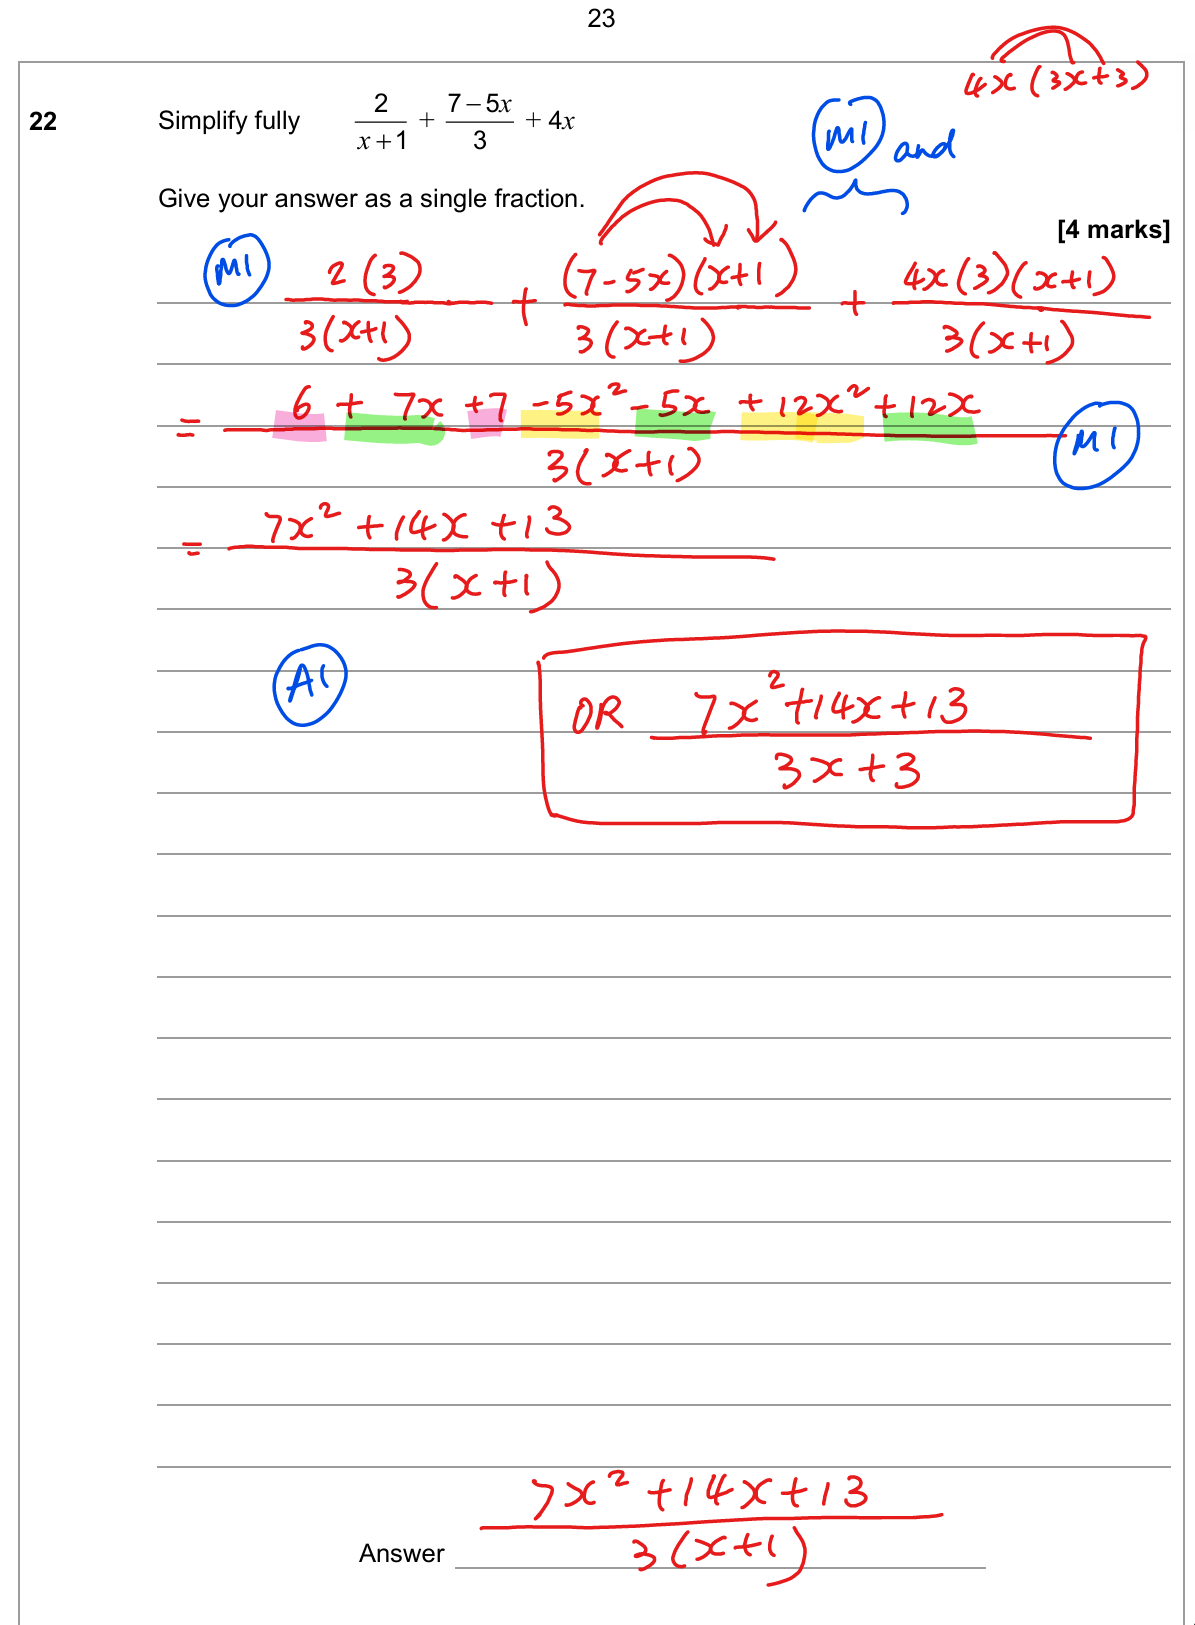 23
4x (3x+3)
22 Simplify fully 2/(x+1) + (7−5x)/3 + 4x
M1 and
Give your answer as a single fraction.
[4 marks]
M1 2(3)/3(x+1) + (7-5x)(x+1)/3(x+1) + 4x(3)(x+1)/3(x+1)
= (6 + 7x +7 -5x² -5x +12x² +12x)/3(x+1) M1
= (7x² +14x +13)/3(x+1)
A1
OR (7x²+14x+13)/(3x+3)
Answer (7x² +14x+13)/3(x+1)